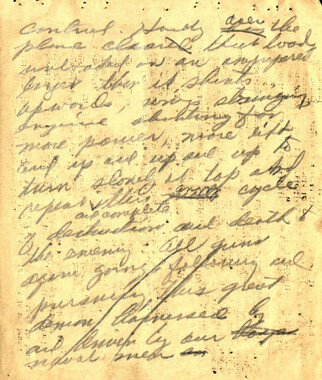 control. Hardly over the
plane cleared that woody
on an
then it
upwards, wings straining
engine shouting for
more power, more lift
and up and up and up to
turn slowly at top and
repeat this cycle
and complete
of destruction and death to
the enemy. All guns
again going & following and
pursuing this great
demon, harnessed by
and driven by our
naval men